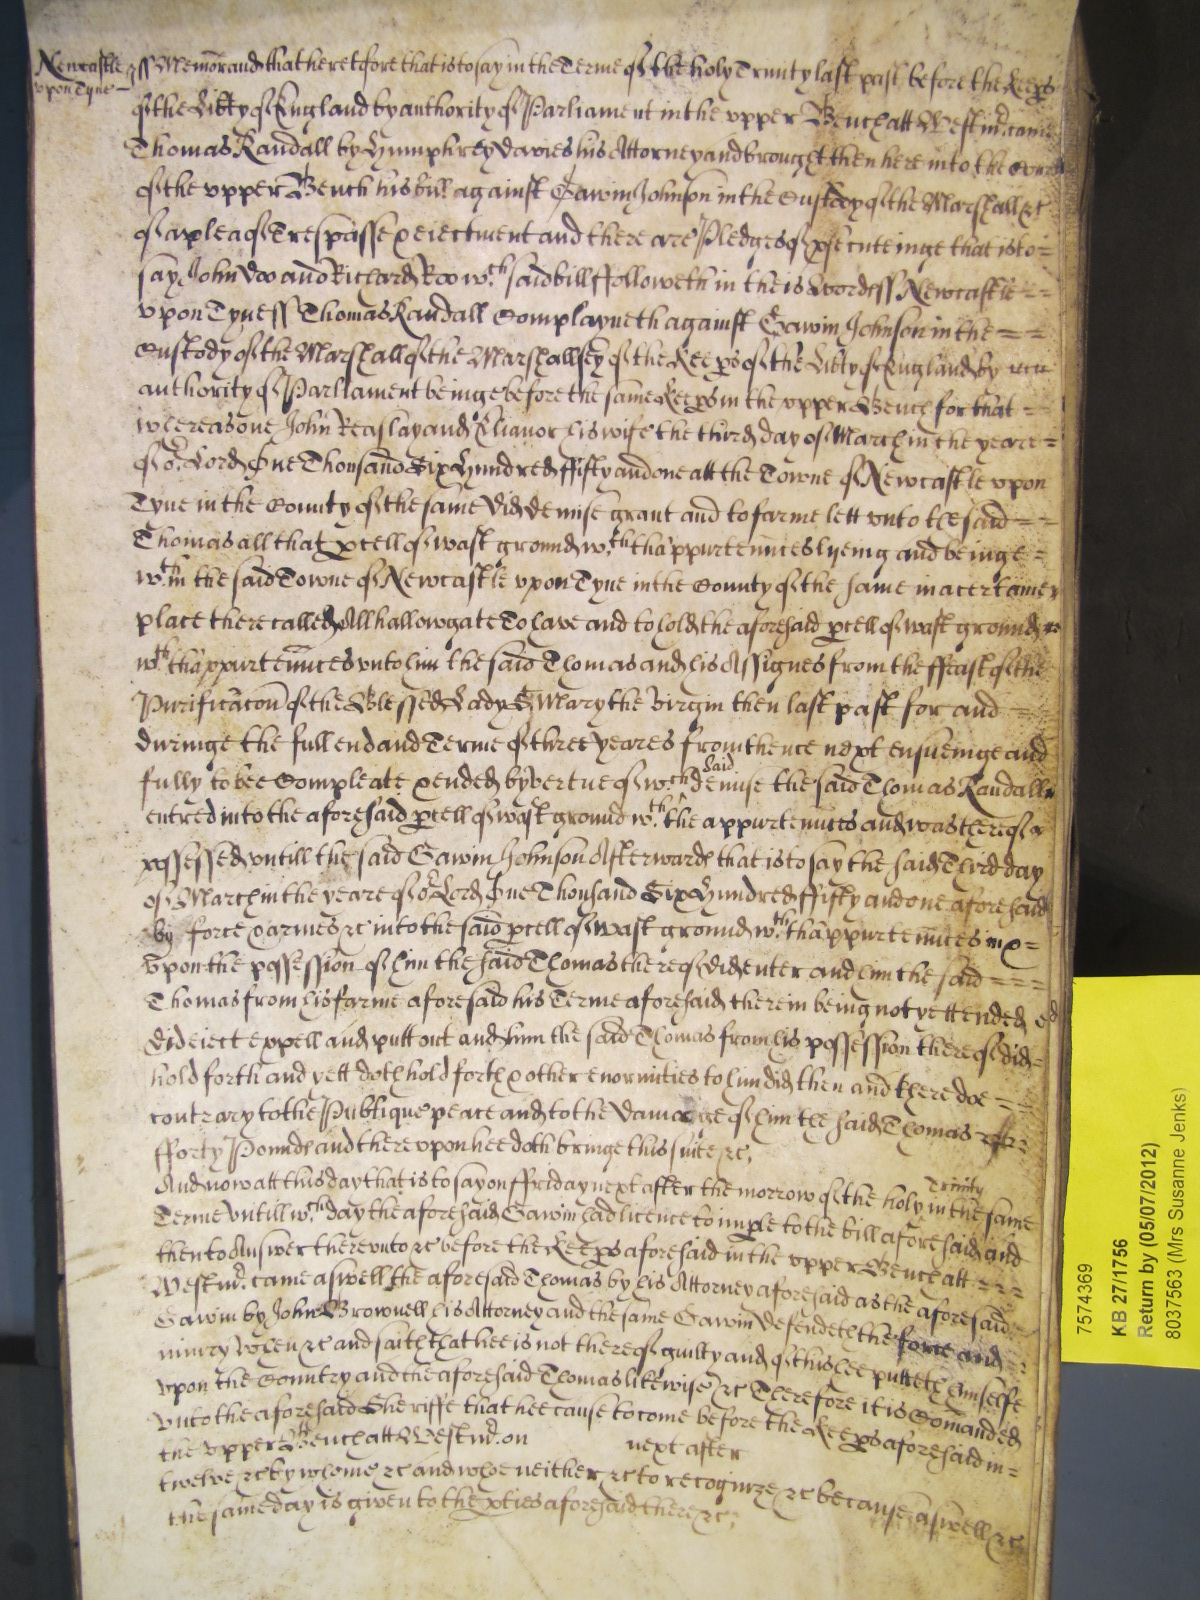 Newcastle
vpon Tyne
ss Memorand that heretofore that is to say in the Terme of the holy Trinity last past before the Keeps
of the Libty of England by authority of Parliament in the vpper Bench att Westmr. came
Thomas Randall by Humphrey Davies his Attorney and brought then here into the Court
of the vpper Bench his bill against Gawin Johnson in the Custody of the Marshall &c
of a plea of Trespasse & eiectment and there are Pledges of psecuteinge that is to =
say John Doo and Richard Roo wch. said bill ffolloweth in theis Wordes ss Newcastle = =
vpon Tyne ss Thomas Randall Complayneth against Gawin Johnson in the = =
Custody of the Marshall of the Marshallsey of the Keeps of the Libty of England by
authority of Parliament beinge before the same Keeps in the vpper Bench for that =
whereas one John Reaslay and Elianor his wife the third day of March in the yeare =
of or. Lord One Thousand Six Hundred ffifty and one att the Towne of Newcastle vpon
Tyne in the County of the same did demise grant and to farme lett vnto the said = =
Thomas all that pcell of wast ground wth. thappurtennces lyeing and beinge =
wth.in the said Towne of Newcastle vpon Tyne in the County of the same in a certaine
place there called Allhallowgate To have and to hold the aforesaid pcell of wast ground
wth. thappurtennces vnto him the said Thomas and his Assignes from the ffeast of the
Purificacon of the Blessed Lady St Mary the Virgin then last past for and =
duringe the full end and Terme of three yeares from thence next ensueinge and
fully to bee Compleate & ended by vertue of wch. said demise the said Thomas Randall
entred into the aforesaid pcell of wast ground wth. the appurtennces and was thereof
possessed vntill the said Gawin Johnson Afterward that is to say the said Third day
of March in the yeare of or Lord One Thousand Six Hundred ffifty and one aforesaid
by force & armes &c into the said pcell of wast ground wth. thappurtennces in & =
vpon the possession of him the said Thomas thereof did enter and him the said = = =
Thomas from his farme aforesaid his Terme aforesaid therein being not yett ended
did eiect expell and putt out and him the said Thomas from his possession thereof did =
hold forth and yett doth hold forth & other enormities to him did then and there doe = =
contrary to the Publique peace and to the damage of him the said Thomas
fforty Pounds and there vpon hee doth bringe this suite &c.
And now att this day that is to say on ffriday next after the morrow of the holy Trinity in the same
Terme vntill wch. day the aforesaid Gawin had licence to imple to the bill aforesaid and
then to Answer therevnto &c before the Keeps aforesaid in the vpper Bench att = = =
Westmr. came aswell the aforesaid Thomas by his Attorney aforesaid as the aforesaid
Gawin by John Brownell his Attorney and the same Gawin defendeth the force and
iniury when &c and saith that hee is not thereof guilty and of this hee putteth himselfe
vpon the Country and the aforesaid Thomas likewise &c Therefore it is Comanded
vnto the aforesaid Sheriffe that hee cause to come before the Keeps aforesaid in =
the vpper Bench att Westmr. on next after
twelve &c by whome &c and whoe neither &c to recognize &c because aswell &c
the same day is given to the pties aforesaid there &c.
7574369
KB 27/1756
Return by (05/07/2012)
8037563 (Mrs Susanne Jenks)